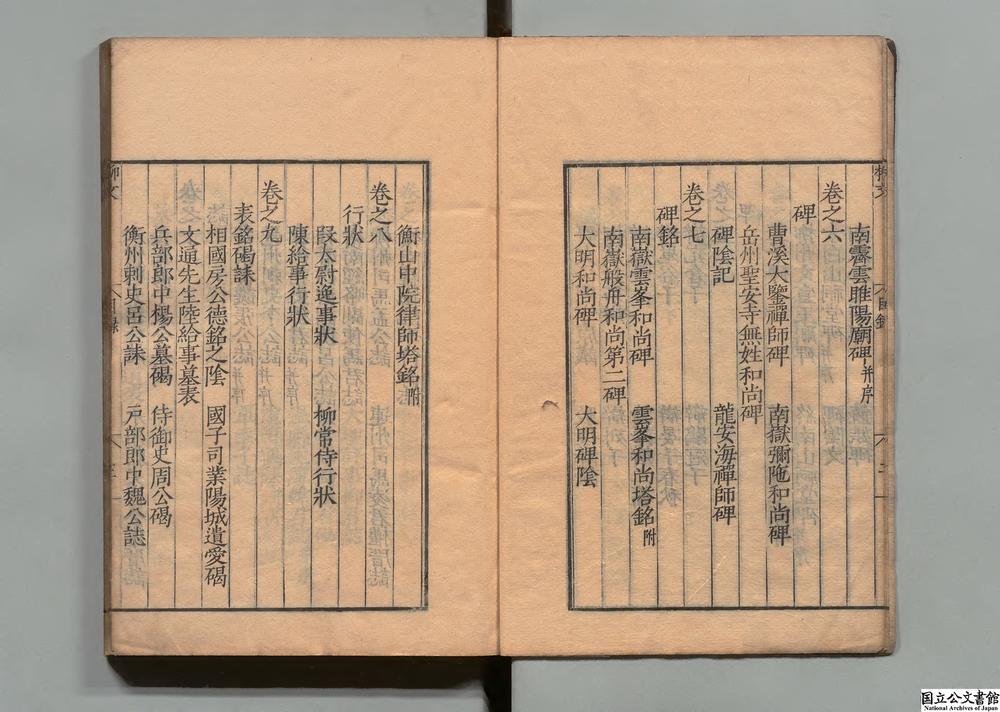 南霽雲睢陽廟碑并序
卷之六
碑
曹溪大鑒禪師碑 南嶽彌陁和尚碑
岳州聖安寺無姓和尚碑
碑陰記 龍安海禪師碑
卷之七
碑銘
南嶽雲峯和尚碑 雲峯和尚塔銘附
南嶽般舟和尚第二碑
大明和尚碑 大明碑陰
衡山中院律師塔銘附
卷之八
行狀
段太尉逸事狀 柳常侍行狀
陳給事行狀
卷之九
表銘碣誄
相國房公德銘之陰 國子司業陽城遺愛碣
文通先生陸給事墓表
兵部郎中楊公墓碣 侍御史周公碣
衡州刺史呂公誄 戸部郎中魏公誌
国立公文書館
National Archives of Japan